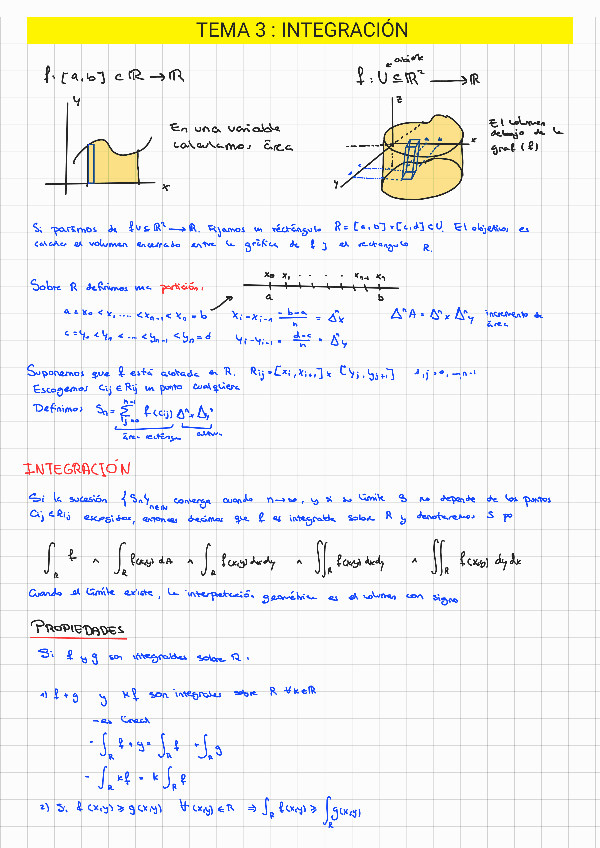 TEMA 3 : INTEGRACIÓN
f: [a,b] ⊂ ℝ → ℝ
f: U ⊆ ℝ² → ℝ
y
x
En una variable
calculamos área
z
x
y
El volumen
debajo de la
graf (f)
Si partimos de f U⊆ℝ² → ℝ. Fijamos un rectángulo R = [a,b]×[c,d] ⊂ U. El objetivo es
calcular el volumen encerrado entre la gráfica de f y el rectangulo R.
Sobre R definimos una partición:
x₀ x₁ . . . . . xₙ₋₁ xₙ
a b
a = x₀ < x₁ .... < xₙ₋₁ < xₙ = b
xᵢ - xᵢ₋₁ = b-a/n = Δⁿx
ΔⁿA = Δⁿx Δⁿy incremento de
área
c = y₀ < y₁ < ... < yₙ₋₁ < yₙ = d
yᵢ - yᵢ₋₁ = d-c/n = Δⁿy
Suponemos que f está acotada en R. Rij = [xi, xi+1] × [yj, yj+1] i,j = 0, ..., n-1
Escogemos Cij ∈ Rij un punto cualquiera
Definimos Sₙ = Σ f(cij) Δⁿx Δⁿy
n-1
i,j=0
área rectángu altura
INTEGRACIÓN
Si la sucesión {Sₙ}n∈ℕ converge cuando n→∞, y si su límite S no depende de los puntos
Cij ∈ Rij escogidos, entonces decimos que f es integrable sobre R y denotaremos S po
∫R f ∧ ∫R f(x,y) dA ∧ ∫R f(x,y) dxdy ∧ ∬R f(x,y) dxdy ∧ ∬R f(x,y) dy dx
Cuando el límite existe, la interpretación geométrica es el volumen con signo
PROPIEDADES
Si f y g son integrables sobre R:
1) f+g y kf son integrables sobre R ∀k∈ℝ
→ es lineal
- ∫R f + g = ∫R f + ∫R g
- ∫R kf = k ∫R f
2) Si f(x,y) ≥ g(x,y) ∀(x,y) ∈ R ⇒ ∫R f(x,y) ≥ ∫R g(x,y)